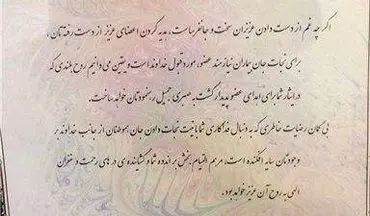 اگرچه غم از دست دادن عزیزان سخت و جانفرساست، هدیه کردن اعضای عزیز از دست رفته‌تان،
برای نجات جان بیماران نیازمند عضو، مورد قبول خداوند است و یقین می‌دانیم روح بلندی که
در ایثار شما برای اهدای عضو پدیدار گشت به صبری جمیل رهنمودتان خواهد ساخت.
بی‌گمان رضایت خاطری که به دنبال فداکاری شما بابت نجات دادن جان هموطنان از جانب خداوند بر
وجودتان سایه افکنده است، مرهم التیام بخش بر اندوه شما و گشاینده‌ی درهای رحمت و غفران
الهی بر روح آن عزیز خواهد بود.